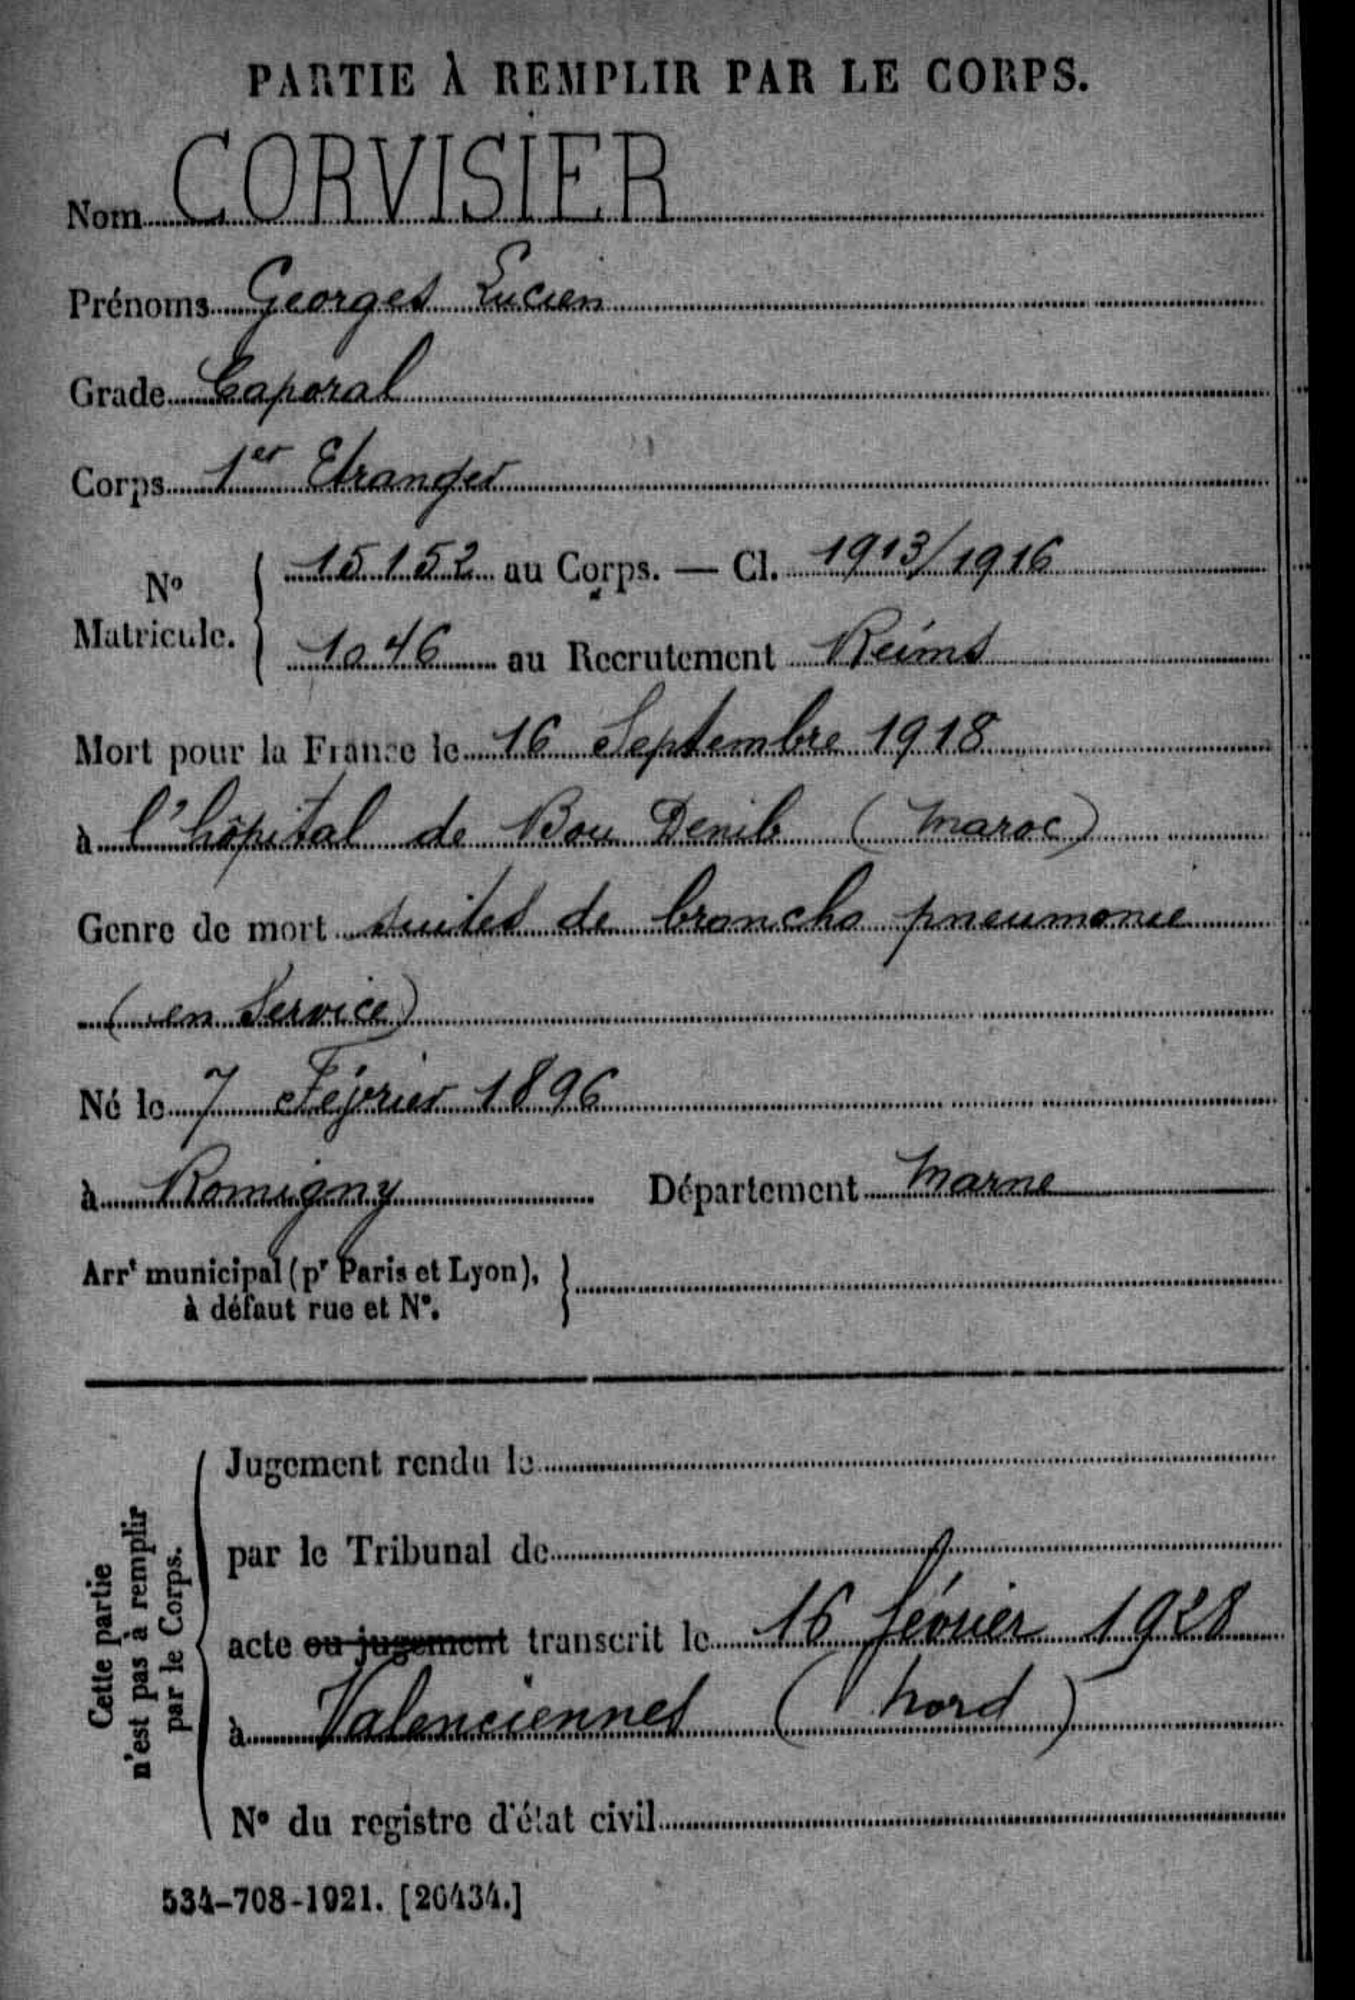 PARTIE À REMPLIR PAR LE CORPS.
Nom CORVISIER
Prénoms Georges Lucien
Grade Caporal
Corps 1er Etranger
N° Matricule. { 15152 au Corps. — Cl. 1913/1916
1046 au Recrutement Reims
Mort pour la France le 16 Septembre 1918
à l'hôpital de Bou Denib (Maroc)
Genre de mort suites de broncho pneumonie
(en Service)
Né le 7 Février 1896
à Romigny Département Marne
Arrt municipal (pr Paris et Lyon), }
à défaut rue et N°.
Cette partie
n'est pas à remplir
par le Corps.
Jugement rendu le
par le Tribunal de
acte ou jugement transcrit le 16 février 1928
à Valenciennes (Nord)
N° du registre d'état civil
534-708-1921. [26434.]